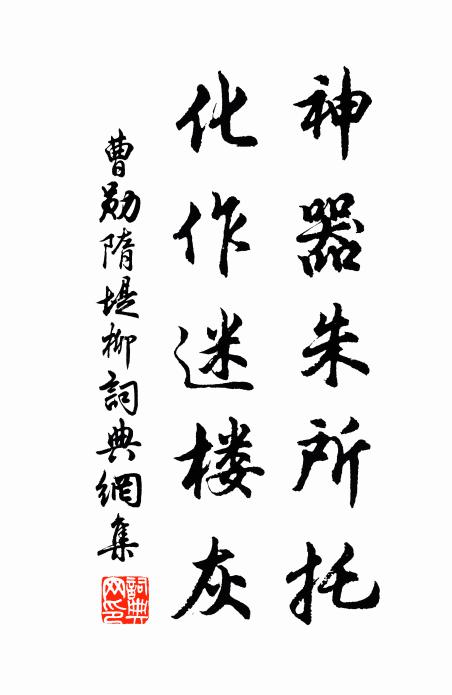 神器朱所托
化作迷楼灰
曹勋隋堤柳詞典網集
詞典网印